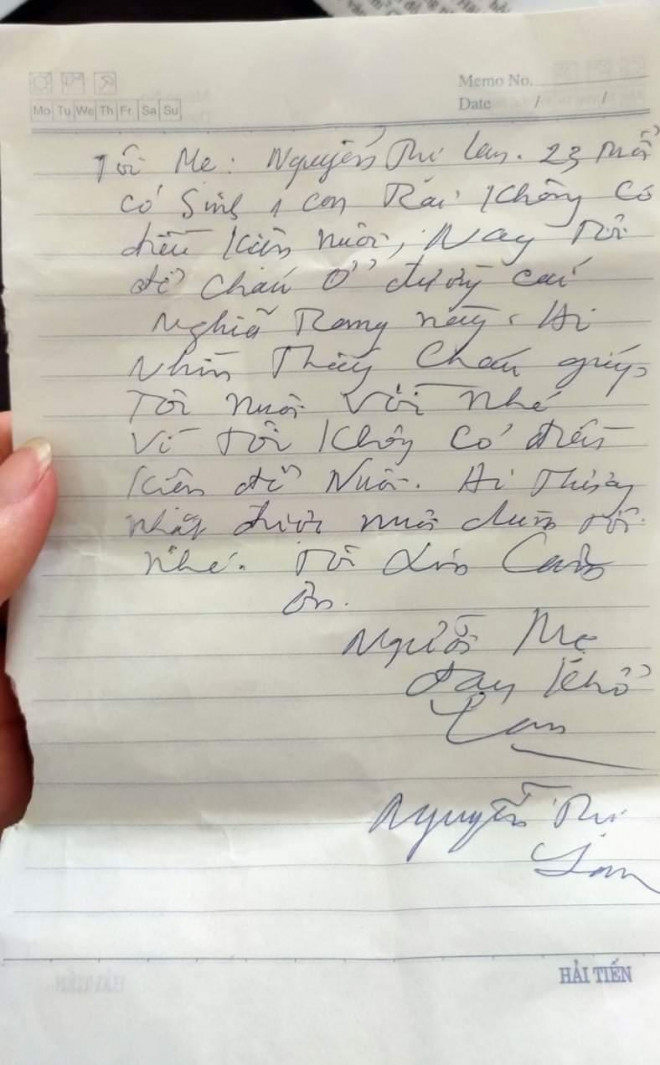 Memo No.
Mo Tu We Th Fr Sa Su
Date / /
Tôi Mẹ: Nguyễn Thị Lan. 23 tuổi
có sinh 1 con Trai không có
điều kiện nuôi, Nay tôi
để cháu ở đường cái
nghĩa Trang này. Ai
nhìn Thấy Cháu giúp
Tôi nuôi với nhé
vì tôi không có điều
kiện để Nuôi. Ai Thương
nhặt được nuôi dùm tôi
nhé. Tôi xin Cảm
ơn.
Người Mẹ
đau khổ
Lan
Nguyễn Thị
Lan
HẢI TIẾN